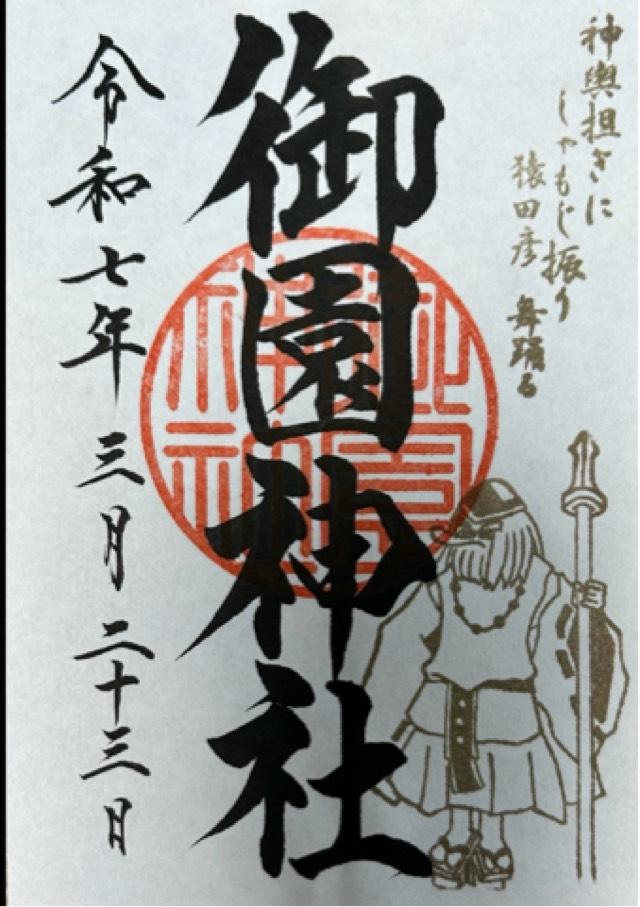 神輿担ぎに
しゃもじ振り
猿田彦 舞踊る
御園神社
令和七年 三月 二十三日